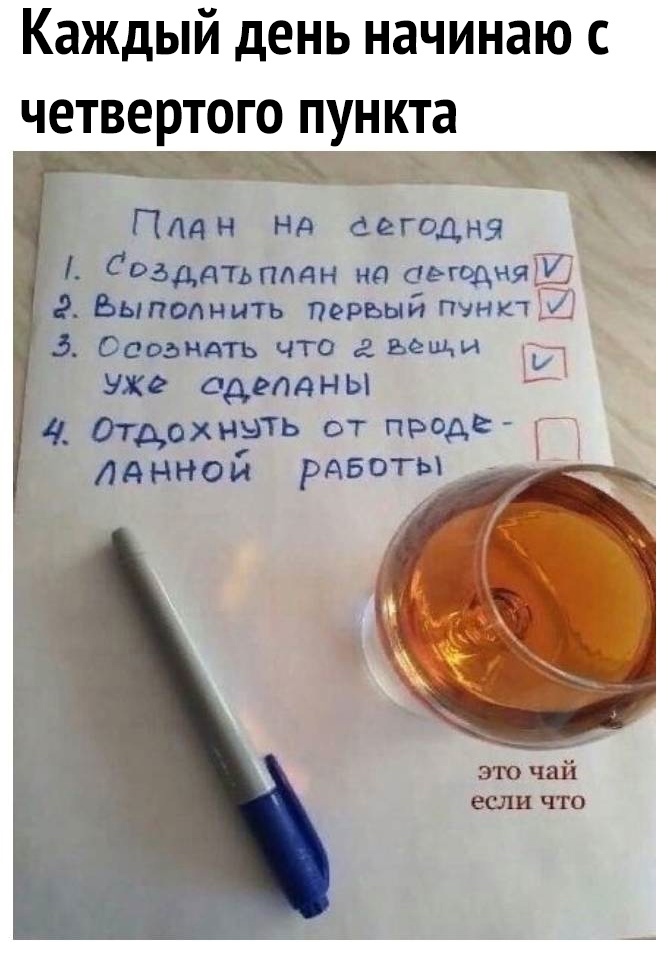 Каждый день начинаю с
четвертого пункта
План на сегодня
1. Создать план на сегодня
2. Выполнить первый пункт
3. Осознать что 2 вещи
уже сделаны
4. Отдохнуть от проде-
ланной работы
это чай
если что